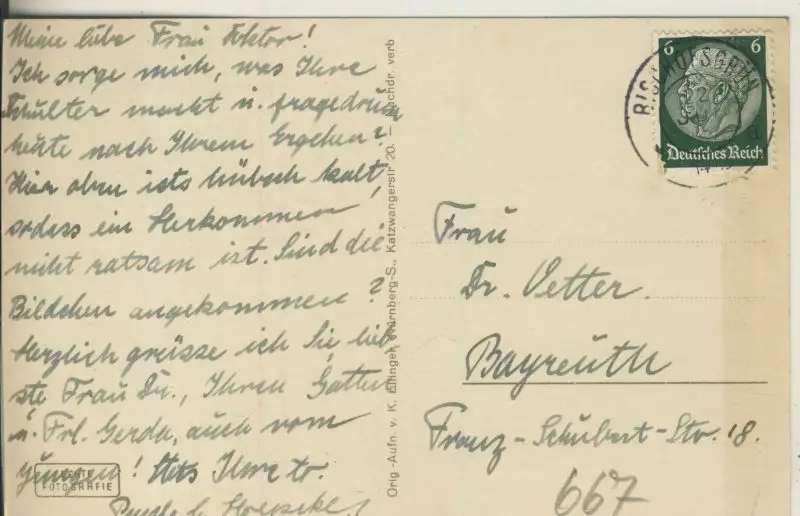 Meine liebe Frau Doktor!
Ich sorge mich, was Ihre
Schulter macht u.
heute nach Ihrem Ergehen?
Hier oben ists hübsch kalt,
sodass ein Herkommen
nicht ratsam ist. Sind die
Bildchen angekommen?
Herzlich grüsse ich Sie, lieb-
ste Frau Dr., Ihren Gatten
u. Frl. Gerda, auch vom
Jungen! Stets Ihre tr.
ECHTE
FOTOGRAFIE
Orig.-Aufn. v. K. Nürnberg-S., Katzwangerstr. 20. — Nachdr. verb
6 6
Deutsches Reich
BISCHOFSGRÜN
Frau
Dr. Vetter.
Bayreuth
Franz-Schubert-Str. 18.
667